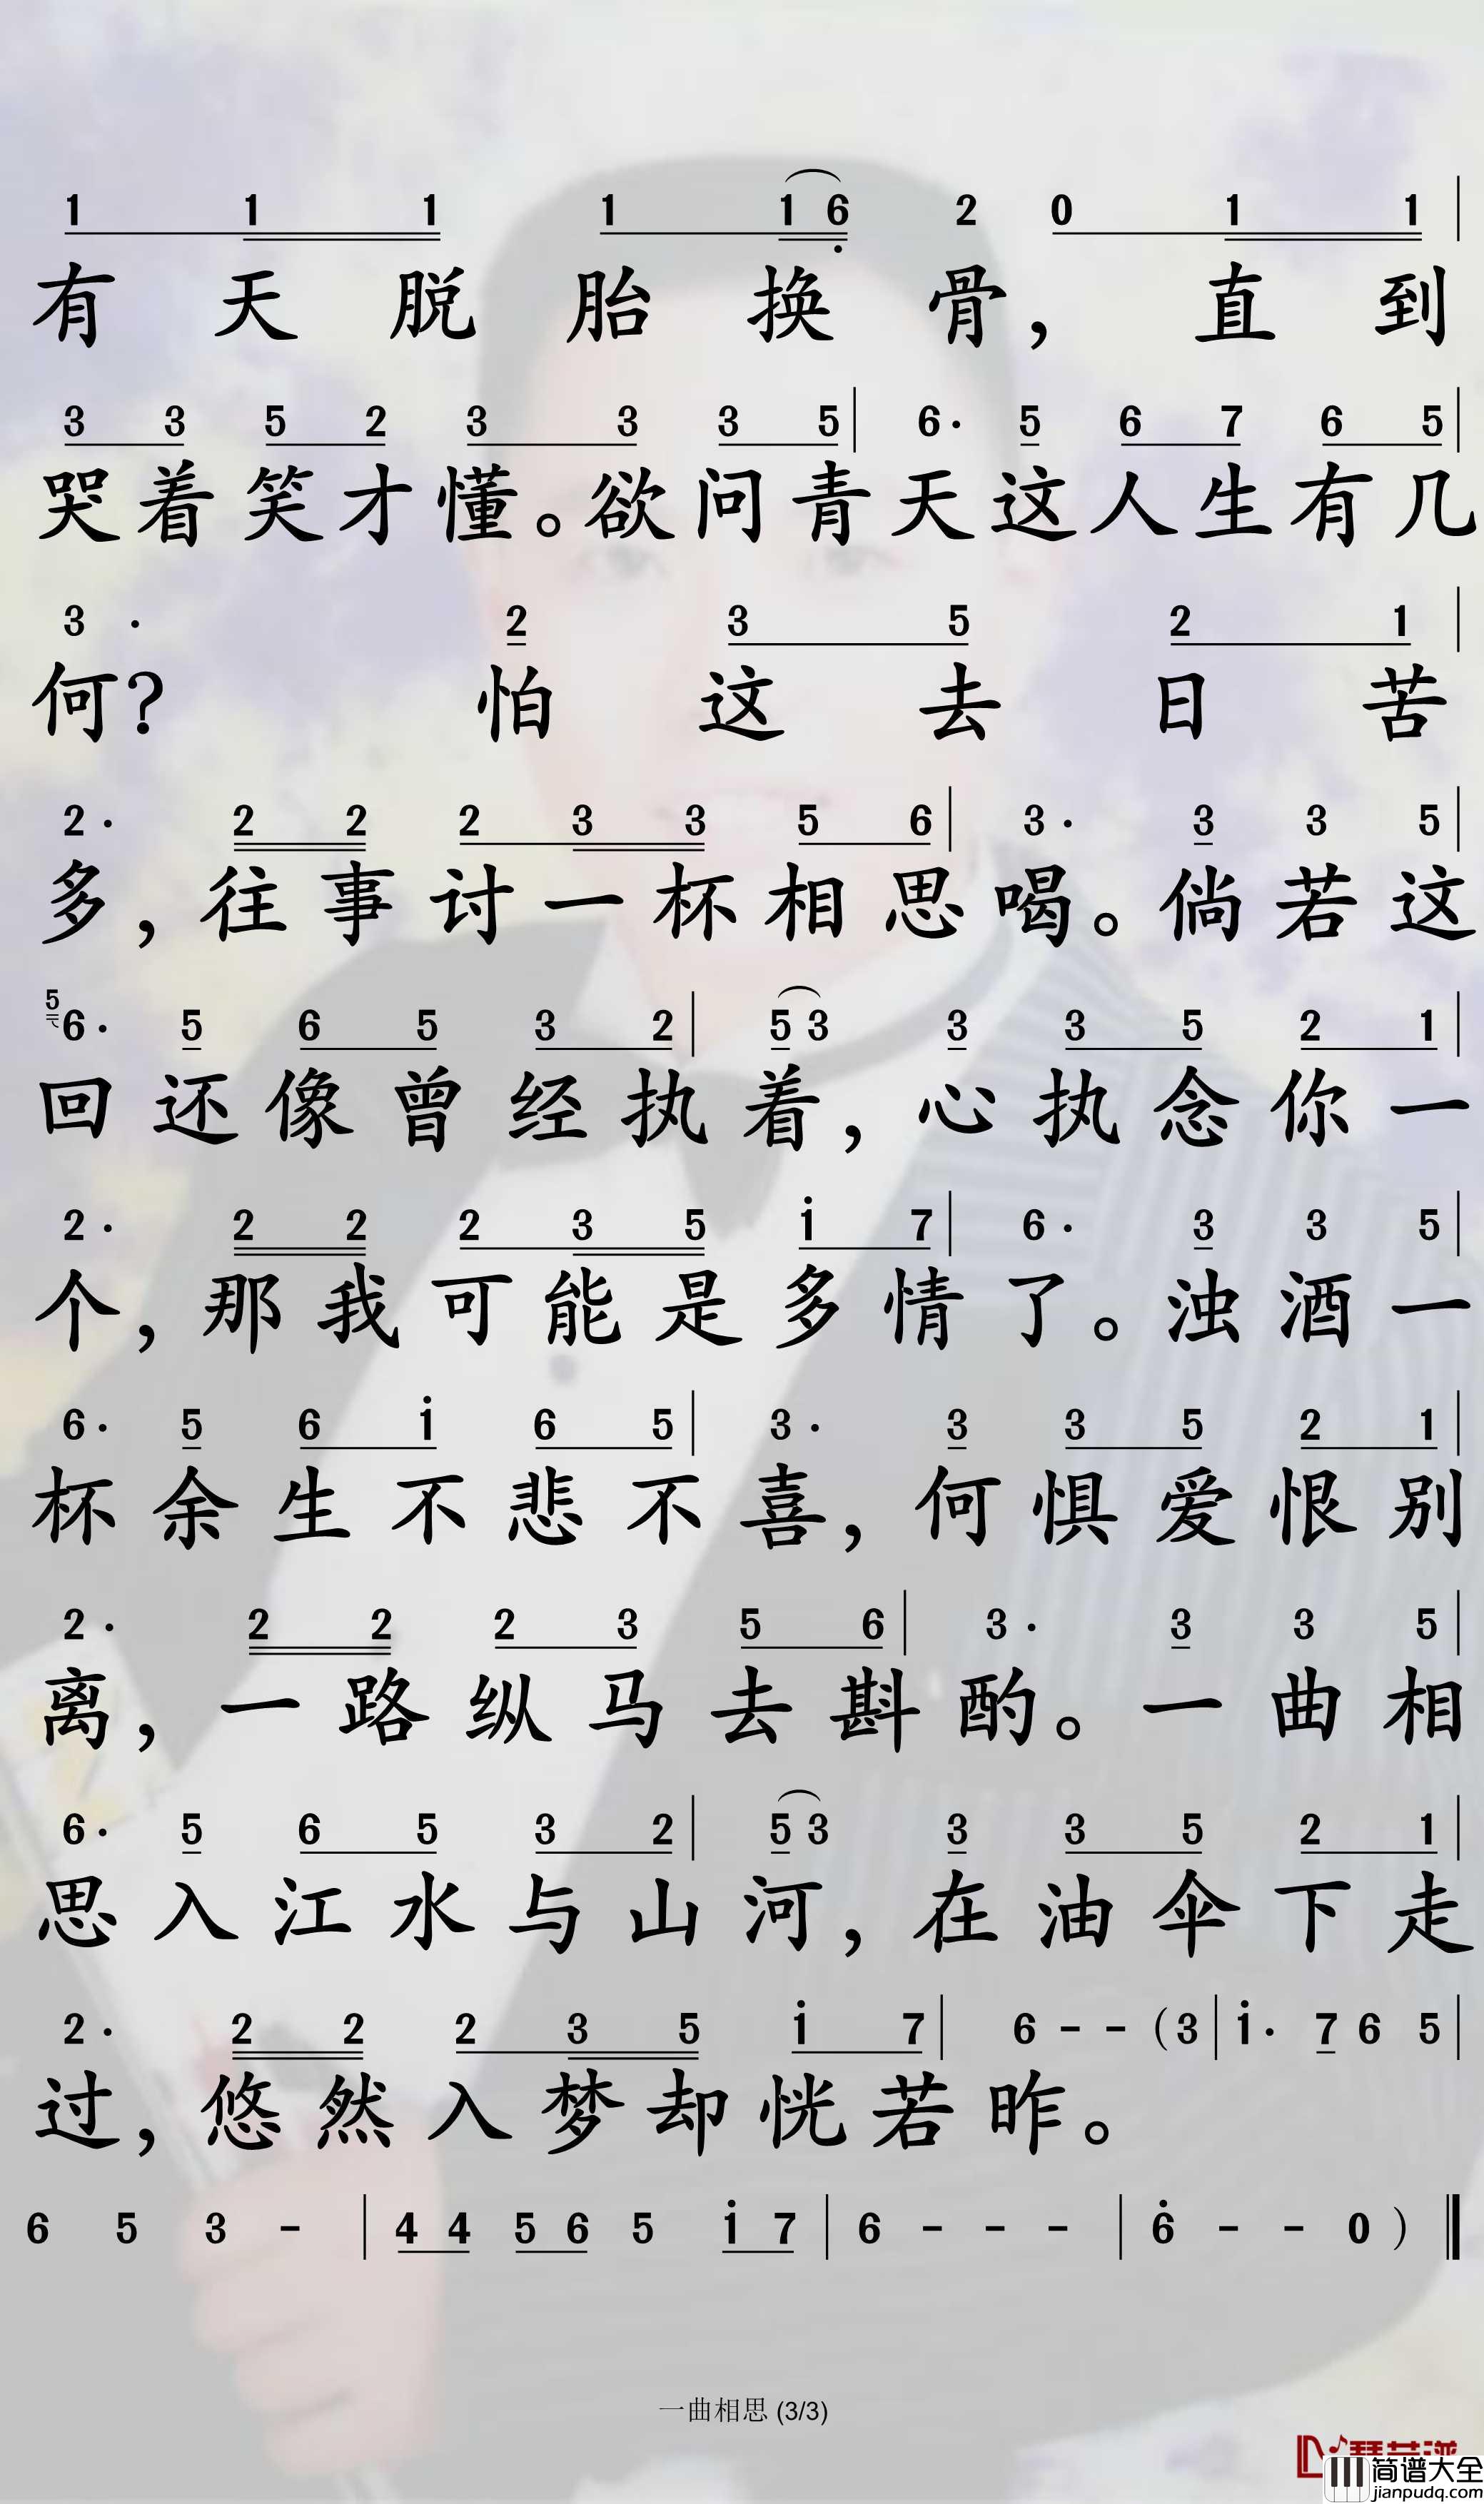 1 1 1 1 1 6 2 0 1 1 |
有天脱胎换骨，直到
3 3 5 2 3 3 3 5 | 6· 5 6 7 6 5 |
哭着笑才懂。欲问青天这人生有几
3 · 2 3 5 2 1 |
何？怕这去日苦
2· 2 2 2 3 3 5 6 | 3· 3 3 5 |
多，往事讨一杯相思喝。倘若这
5 6· 5 6 5 3 2 | 5 3 3 3 5 2 1 |
回还像曾经执着，心执念你一
2· 2 2 2 3 5 i 7 | 6· 3 3 5 |
个，那我可能是多情了。浊酒一
6· 5 6 i 6 5 | 3· 3 3 5 2 1 |
杯余生不悲不喜，何惧爱恨别
2· 2 2 2 3 5 6 | 3· 3 3 5 |
离，一路纵马去斟酌。一曲相
6· 5 6 5 3 2 | 5 3 3 3 5 2 1 |
思入江水与山河，在油伞下走
2· 2 2 2 3 5 i 7 | 6 - - (3 | i· 7 6 5 |
过，悠然入梦却恍若昨。
6 5 3 - | 4 4 5 6 5 i 7 | 6 - - - | 6 - - 0 )
一曲相思 (3/3)
简谱大全
jianpudq.com